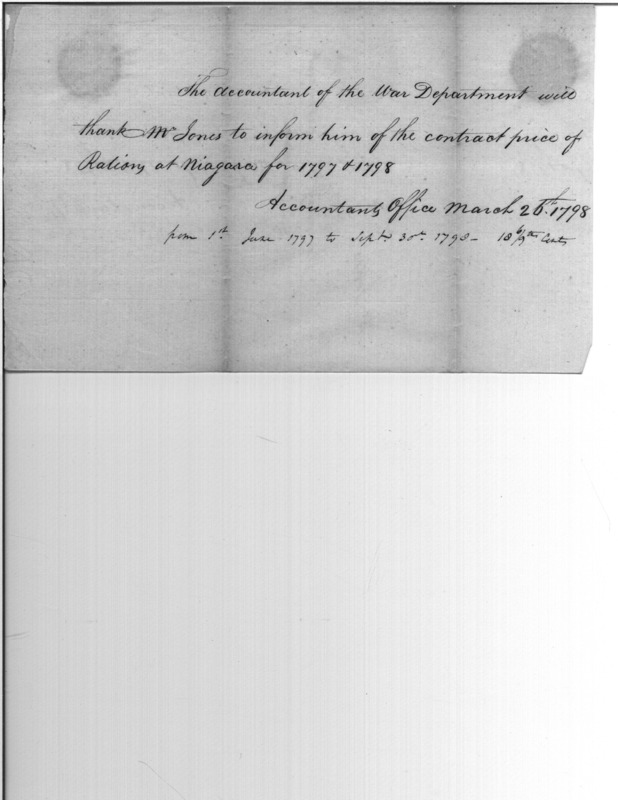 The Accountant of the War Department will
thank Mr Jones to inform him of the contract price of
Rations at Niagara for 1797 & 1798
Accountants Office March 26th 1798
from 1st. June 1797 to Septr. 30th. 1798 - 18 6/9ths Cents